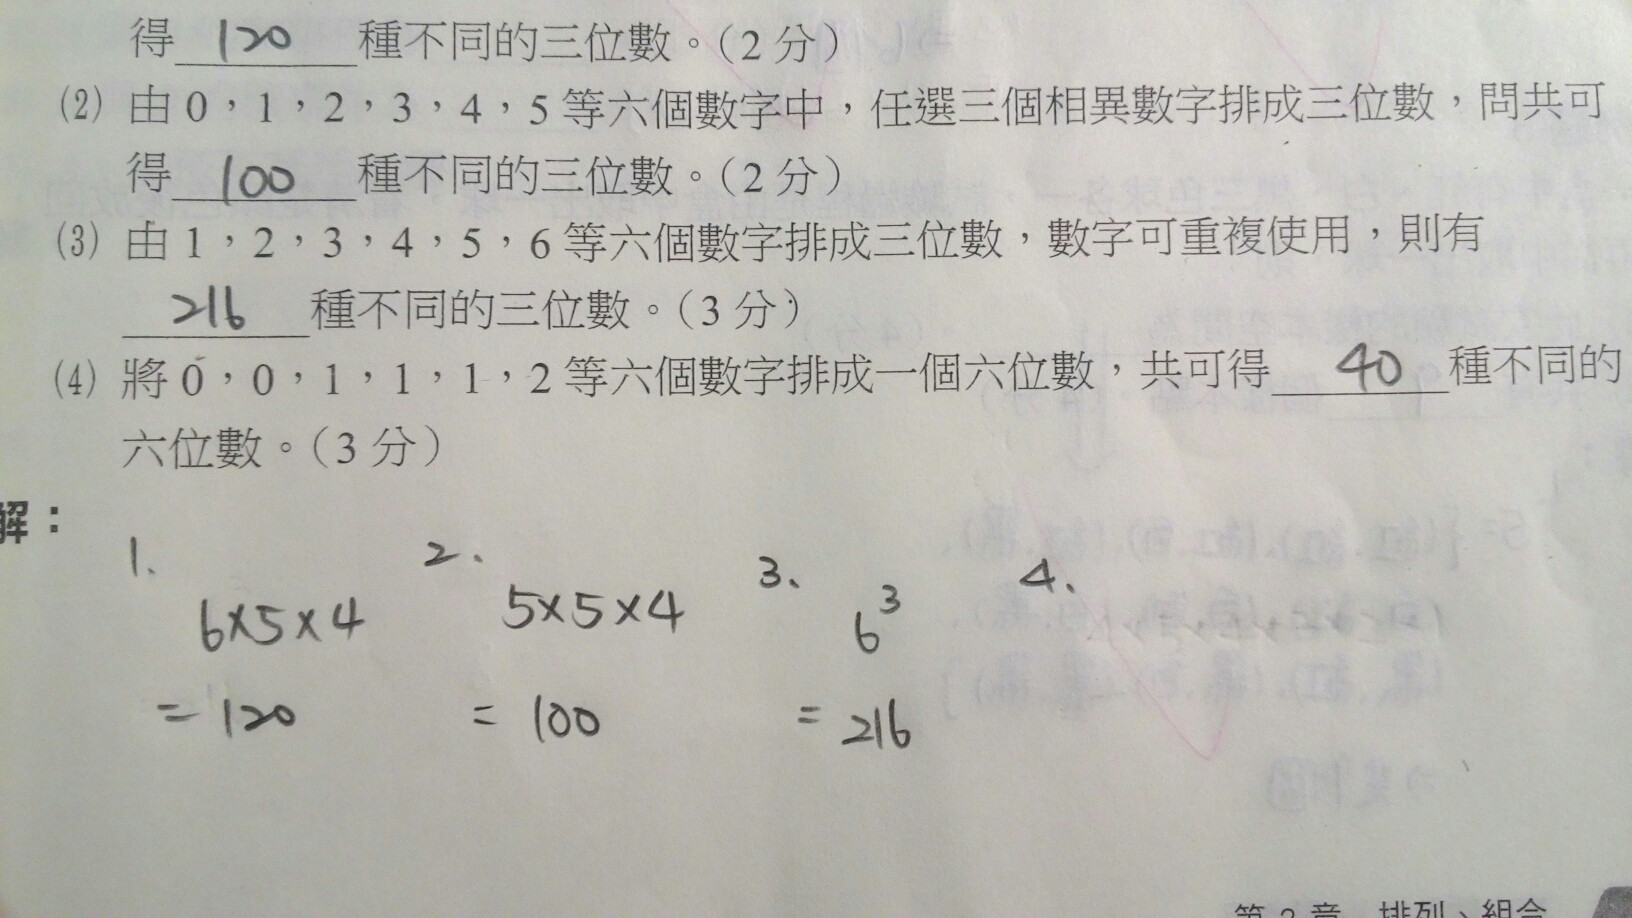 得 120 種不同的三位數。(2 分)
(2) 由 0，1，2，3，4，5 等六個數字中，任選三個相異數字排成三位數，問共可
得 100 種不同的三位數。(2 分)
(3) 由 1，2，3，4，5，6 等六個數字排成三位數，數字可重複使用，則有
216 種不同的三位數。(3 分)
(4) 將 0，0，1，1，1，2 等六個數字排成一個六位數，共可得 40 種不同的
六位數。(3 分)
解：
1. 2、 3、 4、
6×5×4 5×5×4 6³
= 120 = 100 = 216
第 2 章 排列、組合